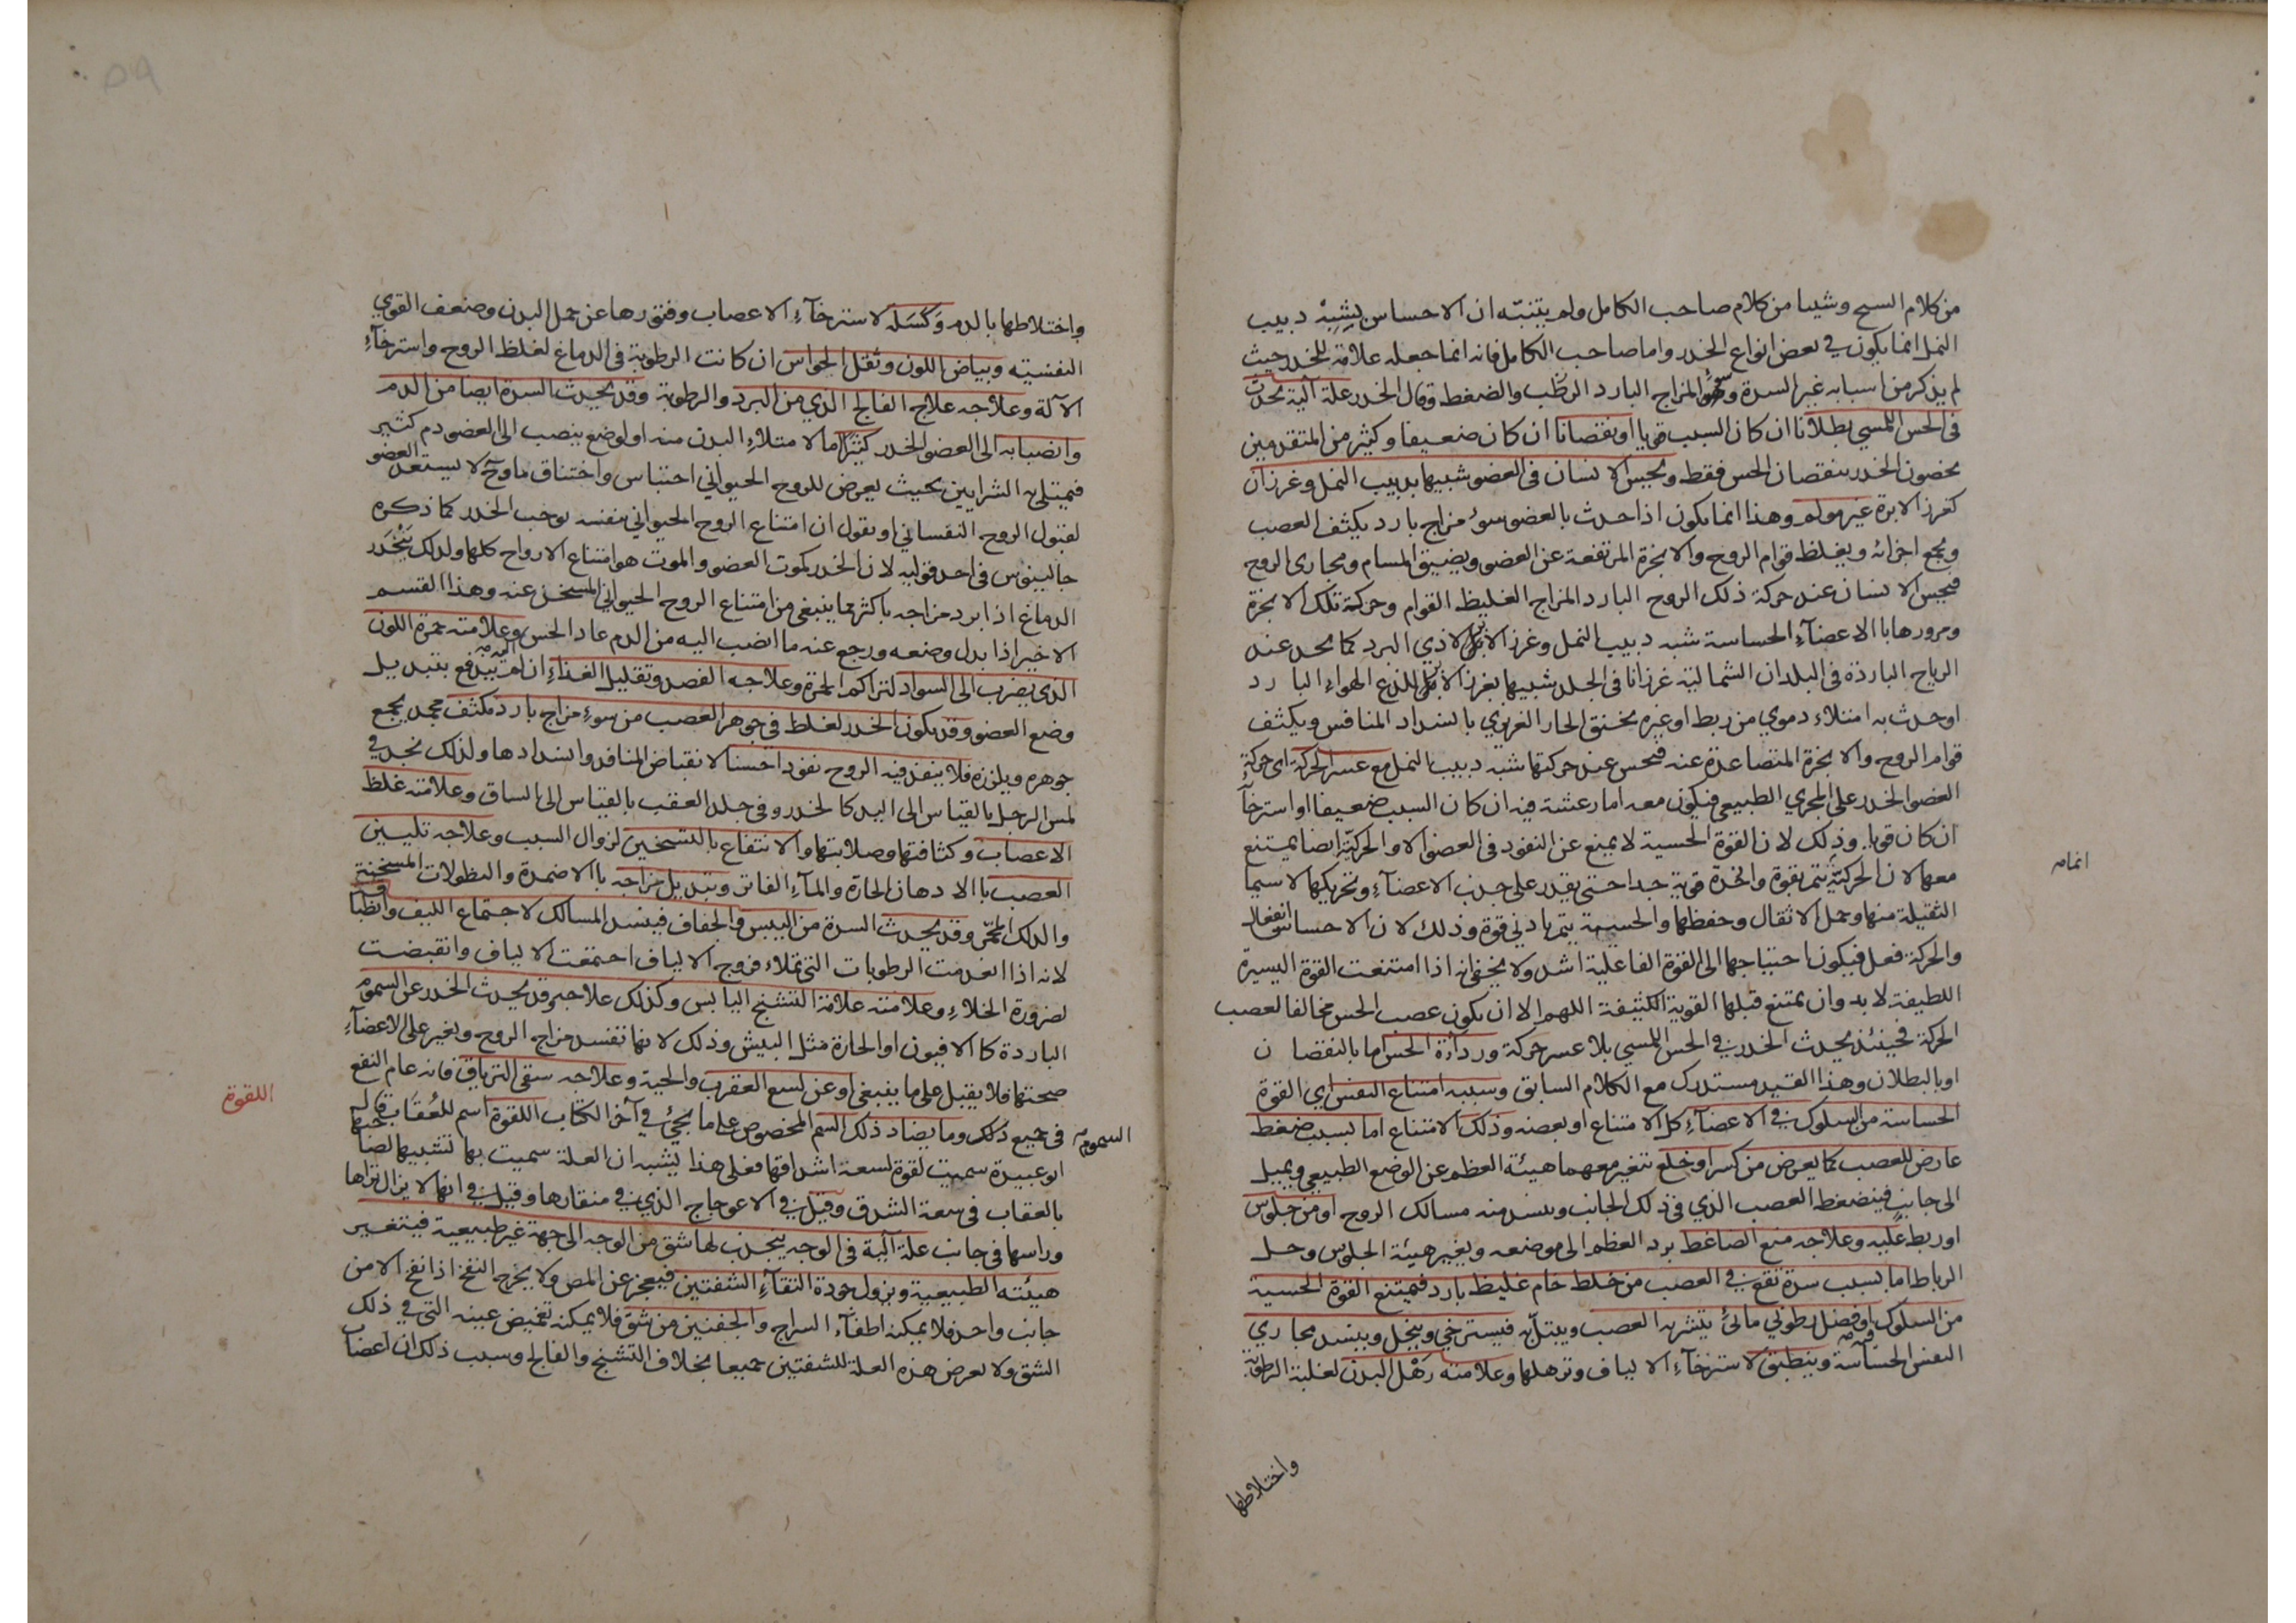 من كلام المسيح وشيئا من كلام صاحب الكامل ولم يتنبّه ان الاحساس بشبه دبيب
النمل انما يكون في بعض انواع الخدر واما صاحب الكامل فانه انما جعله علامة للخدر حيث
لم يذكر من اسبابه غير السدة وسوء المزاج البارد الرطب والضغط وقال الخدر علة آلية تحدث
في الحس اللمسي بطلانا ان كان السبب قويا او نقصانا ان كان ضعيفا وكثير من المتقدمين
يخصون الخدر بنقصان الحس فقط ويحس الانسان في العضو شبيها بدبيب النمل وغرزان
كغرز الابرة غير مولم وهذا انما يكون اذا حدث بالعضو سوء مزاج بارد يكثف العصب
ويجمع اجزائه ويغلظ قوام الروح والابخرة المرتفعة عن العضو ويضيق المسام ومجارى الروح
فيحس الانسان عند حركة ذلك الروح البارد المزاج الغليظ القوام وحركة تلك الابخرة
ومرورها باالاعضآء الحساسة شبه دبيب النمل وغرز الابر لاذي البرد كما يجد عند
الرياح الباردة في البلدان الشمالية غرزانا في الجلد شبيها بغرز الابر للذع الهواء البارد
اوحدث به امتلاء دموي من ربط او غيره يختنق الحار الغريزي بانسداد المنافس ويكثف
قوام الروح والابخرة المتصاعدة عنه فيحس عند حركتها شبه دبيب النمل مع عسر الحركة اى حركة
العضو الخدر على المجري الطبيعي فيكون معه اما رعشة فيه ان كان السبب ضعيفا او استرخآء
ان كان قويا وذلك لان القوة الحسية لا يمنع عن النفوذ في العضو الا والحركيّة ايضا يمتنع
معها لان الحركيّة تتم بقوة وافرة قوية جدا حتى يقدر على جذب الاعضآء وتحريكها لا سيما
الثقيلة منها وحمل الاثقال وحفظها والحسية يتم بادني قوة وذلك لان الاحساس انفعال
والحركة فعل فيكون احتياجها الى القوة الفاعلية اشد ولا يخفى انه اذا امتنعت القوة اليسيرة
اللطيفة لا بد وان يمتنع قبلها القوية الكثيفة اللهم الا ان يكون عصب الحس مخالفا لعصب
الحركة فحينئذ يحدث الخدر في الحس اللمسي بلا عسر حركة ورداءة الحس اما بالنقصان
او بالبطلان وهذا القيد مستدرك مع الكلام السابق وسببه امتناع النفس اي القوة
الحساسة من السلوك في الاعضآء كل الامتناع او بعضه وذلك الامتناع اما بسبب ضغط
عارض للعصب كما يعرض من كسر او خلع تتغير معهما هيئة العظم عن الوضع الطبيعي ويميل
الى جانب فينضغط العصب الذي في ذلك الجانب وينسد منه مسالك الروح او من جلوس
او ربط عليه وعلاجه منع الضاغط برد العظم الى موضعه وتغيير هيئة الجلوس وحل
الرباط اما بسبب سدة تقع في العصب من خلط خام غليظ بارد فيمتنع القوة الحسية
من السلوك او فضل رطوبي مائي يتشربه العصب ويبتل به فيسترخي وينحل وينسد مجاري
النفس الحساسة وينطبق لاسترخآء الالياف وترهلها وعلامته رَهْل البدن لغلبة الرطوبة
اتمامه
واختلاطها
واختلاطها بالدم وَكَسَله لاسترخآء الاعصاب وفتورها عن حمل البدن وضعف القوي
النفسية وبياض اللون وثقل الحواس ان كانت الرطوبة في الدماغ لغلظ الروح واسترخآء
الآلة وعلاجه علاج الفالج الذي من البرد والرطوبة وقد يحدث السدة ايضا من الدم
وانصبابه الى العضو الخدر كثيرًا اما لامتلاء البدن منه او لوضع ينصب الى العضو دم كثير
فيمتلئ به الشرايين بحيث يعرض للروح الحيواني احتباس واختناق ما وح لا يستعد العضو
لقبول الروح النفساني او نقول ان امتناع الروح الحيواني بنفسه يوجب الخدر كما ذكره
جالينوس في احد قوليه لان الخدر كموت العضو والموت هو امتناع الارواح كلها ولذلك يَتخدّر
الدماغ اذا برد مزاجه باكثر مما ينبغي من امتناع الروح الحيواني المسخن عنه وهذا القسم
الاخير اذا بدل وضعه ورجع عنه ما انصب اليه من الدم عاد الحس وعلامته حمرة اللون
الذي يضرب الى السواد لتراكم الحمرة وعلاجه الفصد وتقليل الغذاء ان لم يندفع بتبديل
وضع العضو وقد يكون الخدر لغلظ في جوهر العصب من سوء مزاج بارد مكثف مجمد يجمع
جوهره ويلززه فلا ينفذ فيه الروح نفوذا حسنا لانقباض المنافذ وانسدادها ولذلك نجد في
لمس الرجل بالقياس الى اليد كالخدر وفي جلد العقب بالقياس الى الساق وعلامته غلظ
الاعصاب وكثافتها وصلابتها والانتفاع بالتسخين لزوال السبب وعلاجه تليين
العصب باالادهان الحارة والمآء الفاتر وتبديل مزاجه باالاضمدة والنطولات المسخنة
والدلك المحمّر وقد يحدث السدة من اليبس والجفاف فينسد المسالك لاجتماع الليف وانطباقه
لانه اذا انعدمت الرطوبات التي تملاء فروج الالياف اجتمعت الالياف وانقبضت
لضرورة الخلاء وعلامته علامة التشنج اليابس وكذلك علاجه وقد يحدث الخدر عن السموم
الباردة كاالافيون او الحارة مثل البيش وذلك لانها تفسد مزاج الروح وتغير على الاعضآء
صحتها فلا يقبل على ما ينبغي او عن لسع العقرب والحية وعلاجه سقى الترياق فانه عام النفع
في جميع ذلك وما يضاد ذلك السم المخصوص على ما يجئ في آخر الكتاب اللقوة اسم للعُقَاب قال
ابو عبيدة سميت لقوة لسعة اشداقها فعلى هذا يشبه ان العلة سميت بها تشبيها لصاحبها
بالعقاب في سعة الشدق وقيل في الاعوجاج الذي في منقارها وقيل في انها لا يزال تراها
وراسها في جانب علة آلية في الوجه ينجذب لها شق من الوجه الى جهة غير طبيعية فيتغير
هيئته الطبيعية ويزول جودة التقآء الشفتين فيعجز عن المص ولا يخرج النفخ اذا نفخ الا من
جانب واحد فلا يمكنه اطفآء السراج والجفنين من شق فلا يمكنه تغميض عينه التي في ذلك
الشق ولا يعرض هذه العلة للشفتين جميعا بخلاف التشنج والفالج وسبب ذلك ان اعصاب
السموم
اللقوة
٥٩